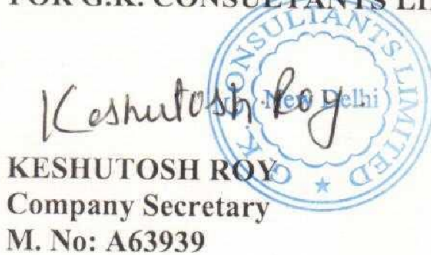 FOR G.K. CONSULTANTS LI
Keshutosh Roy.
G. K. CONSULTANTS LIMITED
New Delhi
KESHUTOSH ROY
Company Secretary
M. No: A63939